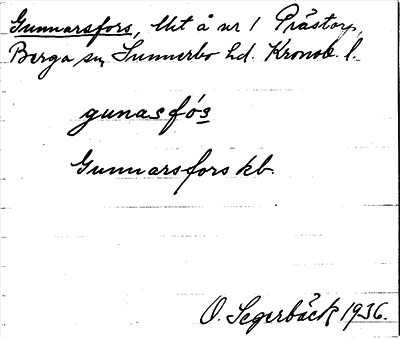 Gunnarsfors, lht å nr 1 Prästorp,
Berga sn, Sunnerbo hd. Kronob. l.
gunasfós
Gunnarsfors kb
O. Segerbäck 1936.